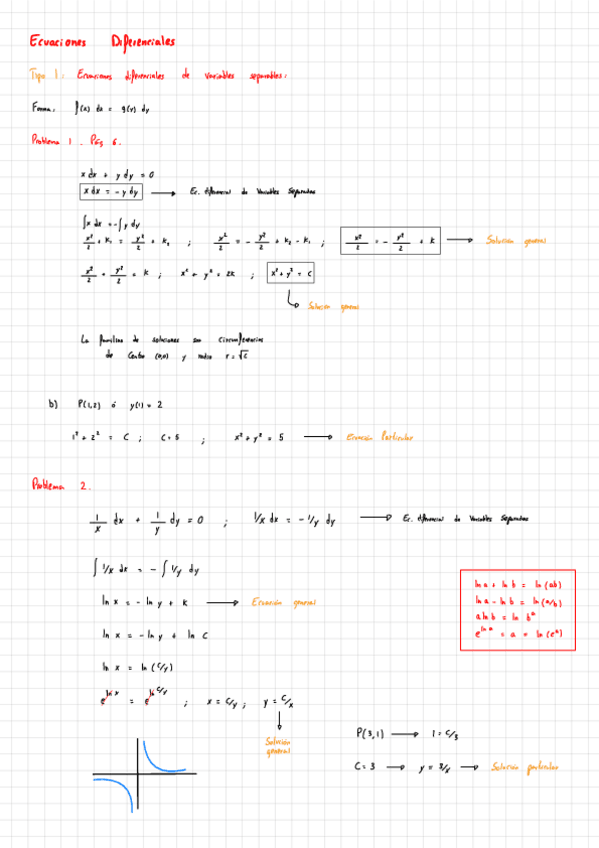 Ecuaciones Diferenciales
Tipo 1: Ecuaciones diferenciales de variables separables:
Forma: f(x) dx = g(y) dy
Problema 1. Pág 6.
x dx + y dy = 0
x dx = - y dy → Ec. diferencial de Variables Separadas
∫x dx = -∫y dy
x²/2 + k₁ = y²/2 + k₂ ; x²/2 = - y²/2 + k₂ - k₁ ; x²/2 = - y²/2 + k → Solución general
x²/2 + y²/2 = k ; x² + y² = 2k ; x² + y² = C
Solución general
La familia de soluciones son circunferencias
de centro (0,0) y radio r = √C
b) P(1,2) ó y(1) = 2
1² + 2² = C ; C = 5 ; x² + y² = 5 → Ecuación Particular
Problema 2.
1/x dx + 1/y dy = 0 ; 1/x dx = - 1/y dy → Ec. diferencial de Variables Separadas
∫ 1/x dx = - ∫ 1/y dy
ln x = - ln y + k → Ecuación general
ln x = - ln y + ln C
ln x = ln (C/y)
e^(ln x) = e^(ln C/y) ; x = C/y ; y = C/x
Solución general
ln a + ln b = ln (ab)
ln a - ln b = ln (a/b)
a ln b = ln b^a
e^(ln a) = a = ln (e^a)
P(3,1) → 1 = C/3
C = 3 → y = 3/x → Solución particular